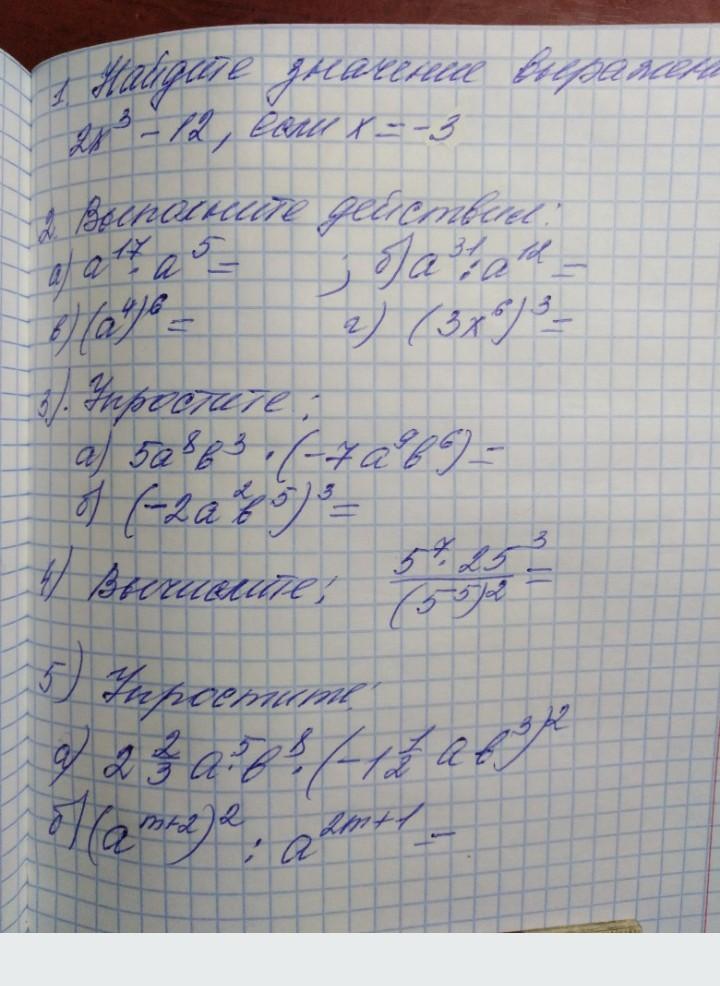 1. Найдите значение выражен
2x³ - 12, если x = -3
2. Выполните действия:
а) a¹⁷ · a⁵ = ; б) a³¹ : a¹² =
в) (a⁴)⁶ = г) (3x⁶)³ =
3). Упростите:
а) 5a⁸b³ · (-7a⁹b⁶) =
б) (-2a²b⁵)³ =
4) Вычислите: (5⁷ · 25³)/(5⁵)² =
5) Упростите:
а) 2 2/3 a⁵ · b⁸ · (-1 1/2 ab³)²
б) (a^(m+2))² : a^(2m+1) =